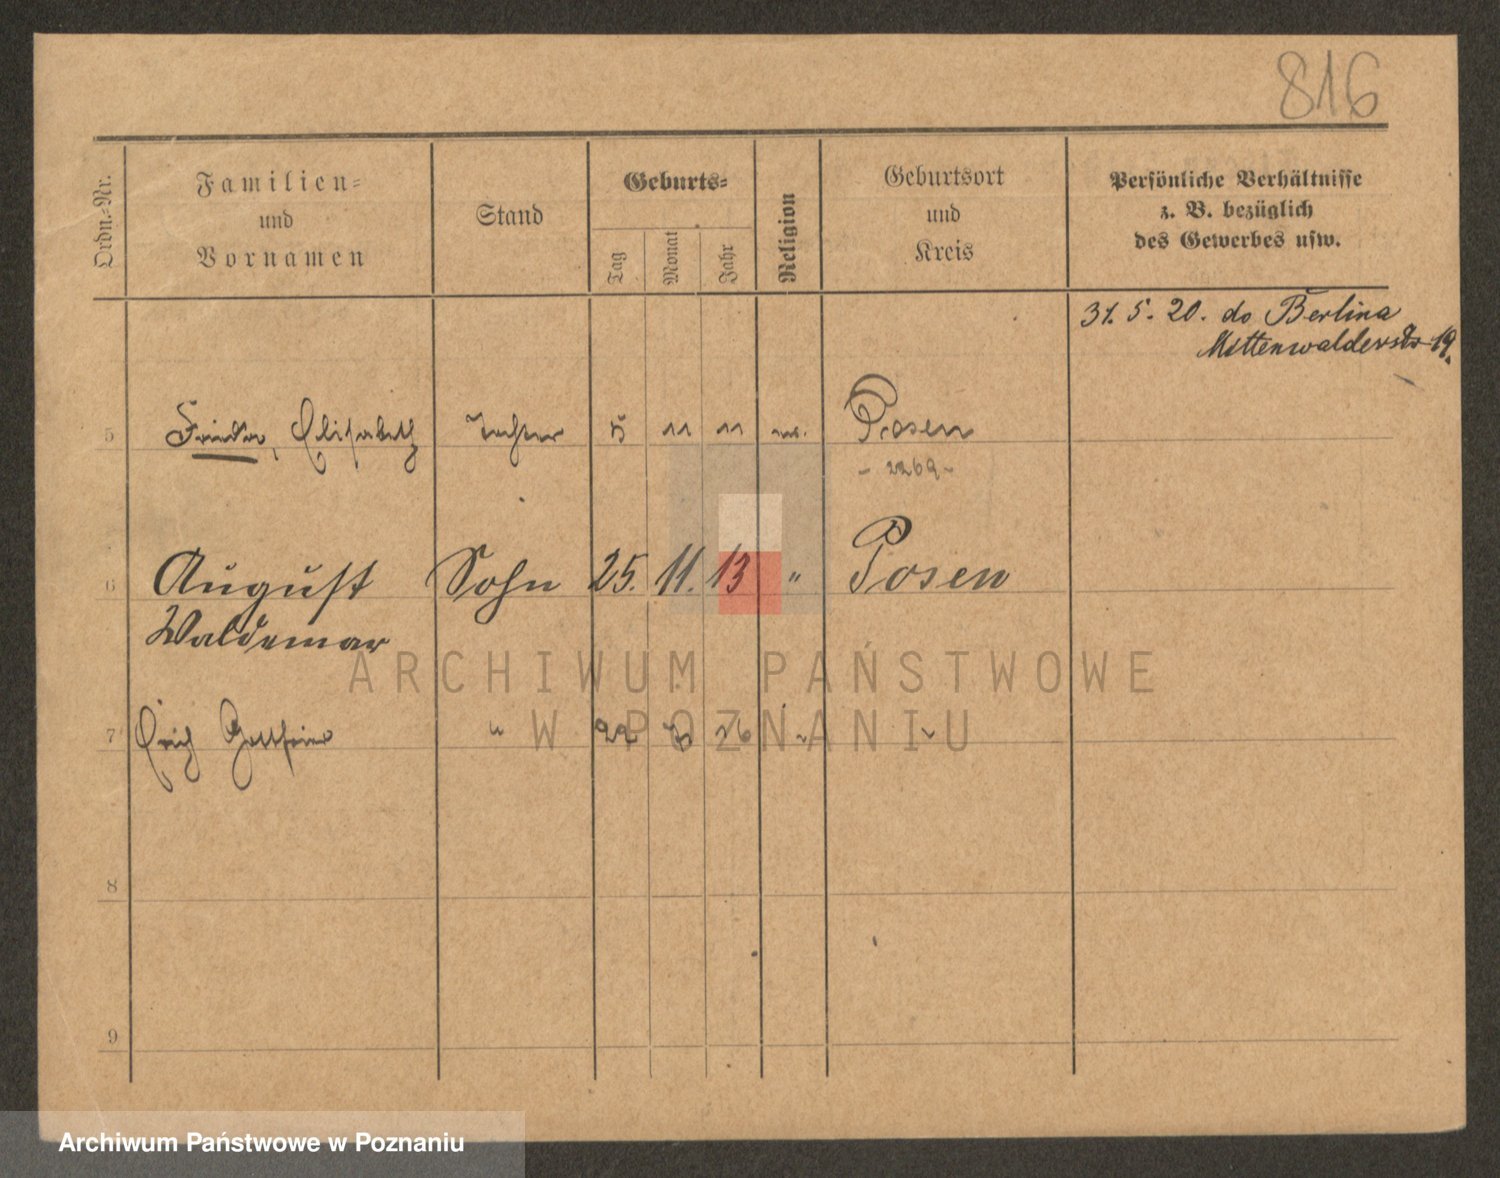 816
Ordn.-Nr.
Familien-
und
Vornamen
Stand
Geburts-
Tag
Monat
Jahr
Religion
Geburtsort
und
Kreis
Persönliche Verhältnisse
z. B. bezüglich
des Gewerbes usw.
31. 5. 20. do Berlina
Mittenwalderstr 19.
5 Frieda, Elisabeth Tochter 5 11 11 Posen
- 2269 -
6 August Sohn 25. 11. 13 " Posen
Waldemar
7 Erich Gottfried " 22 16 " "
8
9
ARCHIWUM PAŃSTWOWE
W POZNANIU
Archiwum Państwowe w Poznaniu